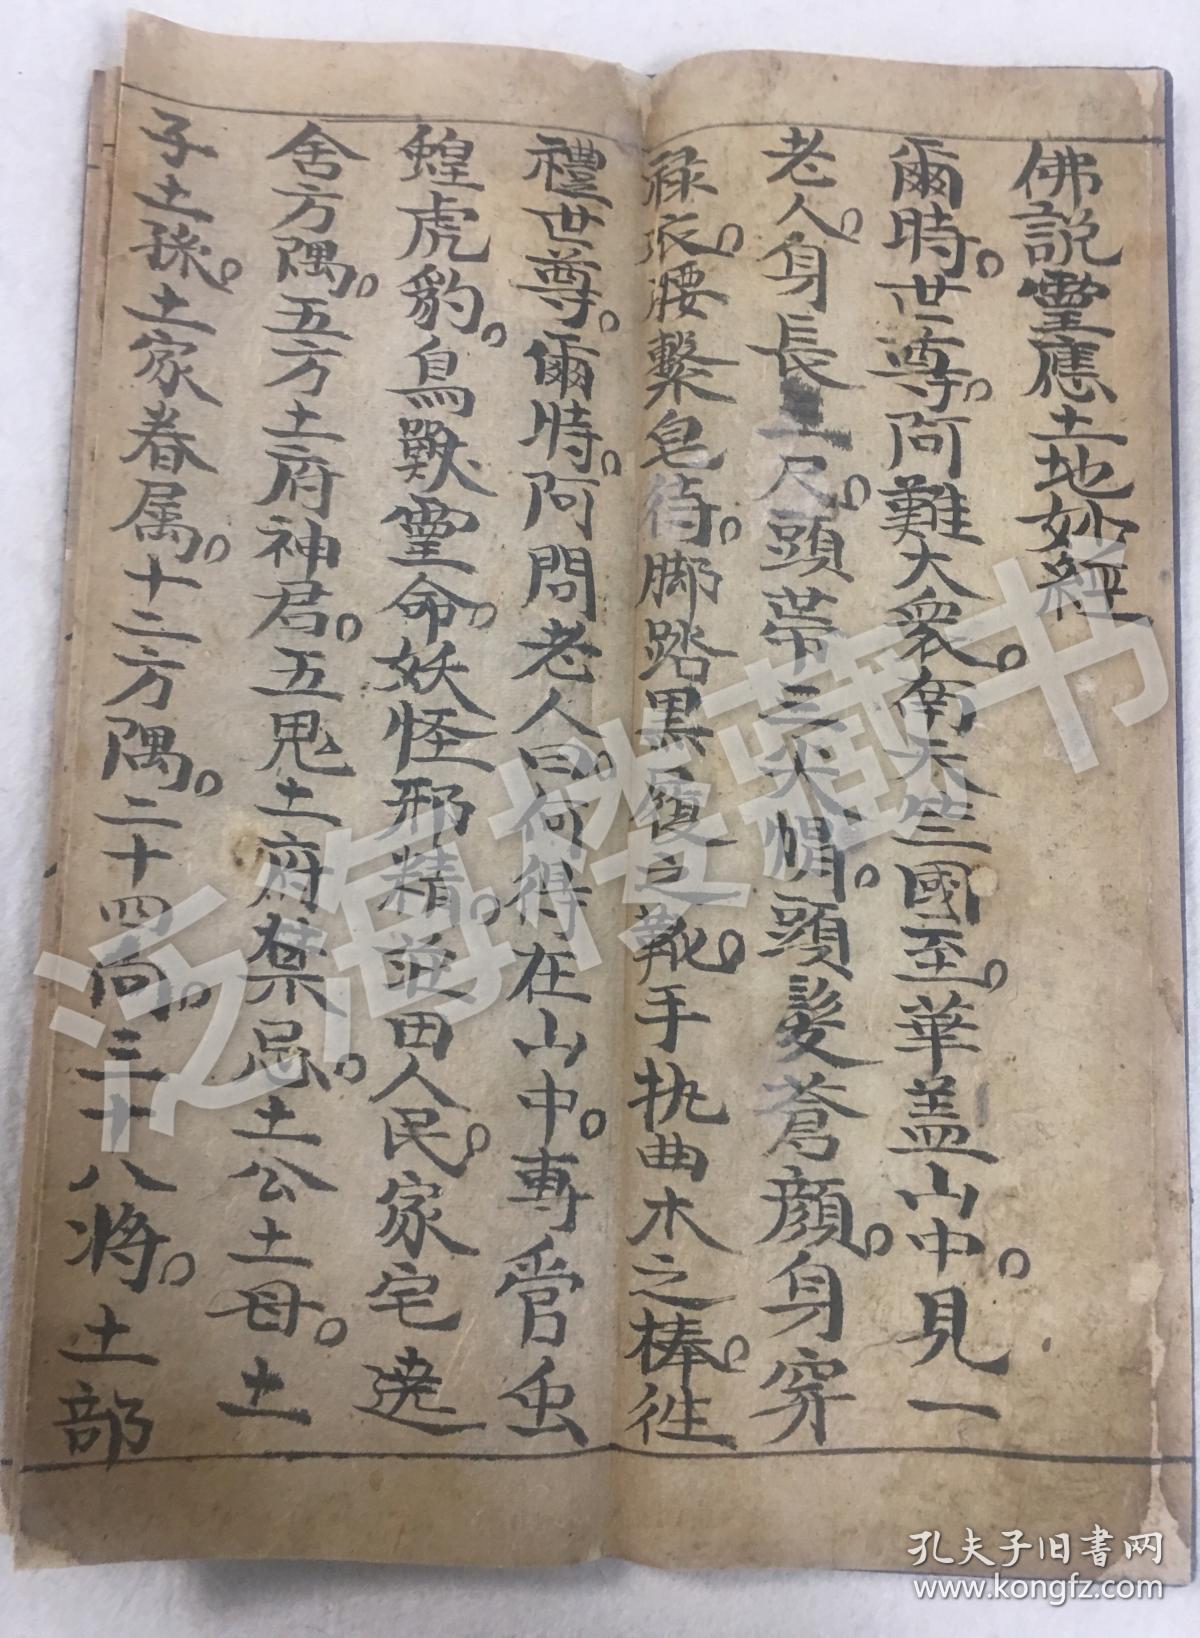 佛説靈應土地妙經
爾時。世尊。阿難大衆。南天竺國至。華盖山中。見一
老人。身長二尺。頭帶三尖帽。頭髮蒼顔。身穿
祿衣。腰繫皂待。脚踏黑履之靴。手执曲木之棒。徃
禮世尊。爾時。阿問老人曰。何得在山中。專管虫
蝗虎豹。鳥獸靈命。妖怪邪精。並田人民。家宅遶
舍方隅。五方土府神君。五鬼土府禁忌。土公土母。土
子土孫。土家眷属。十二方隅。二十四向。三十八將。土部
泛海楼藏书
孔夫子旧書网
www.kongfz.com